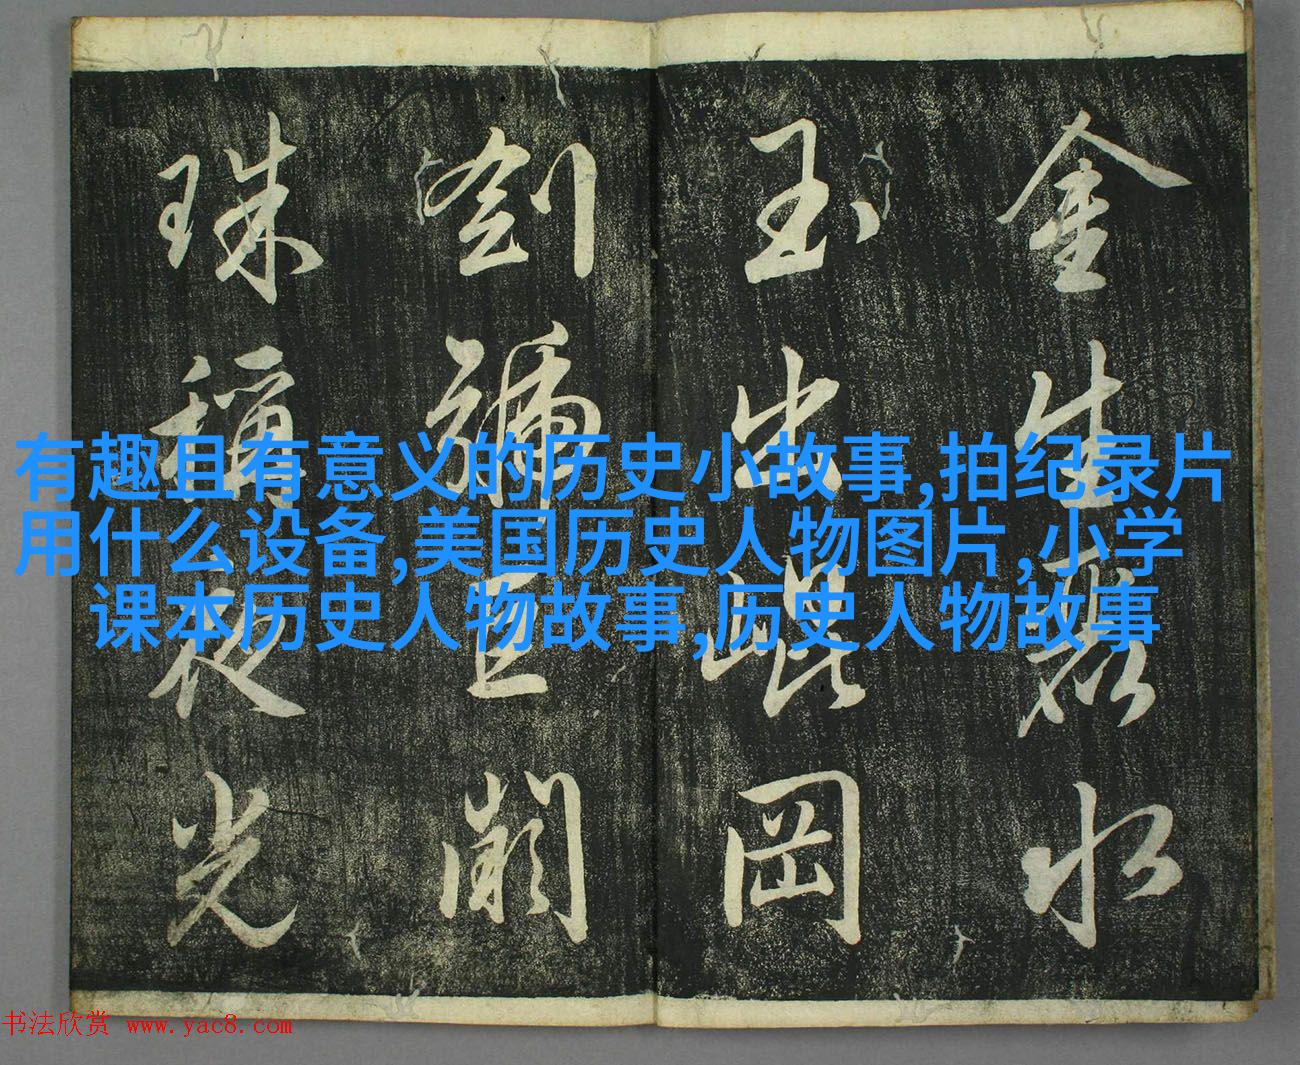 金生麗水
玉出崐岡
劍號巨闕
珠稱夜光
有趣且有意义的历史小故事,拍纪录片
用什么设备,美国历史人物图片,小学
课本历史人物故事,历史人物故事
书法欣赏 www.yac8.com